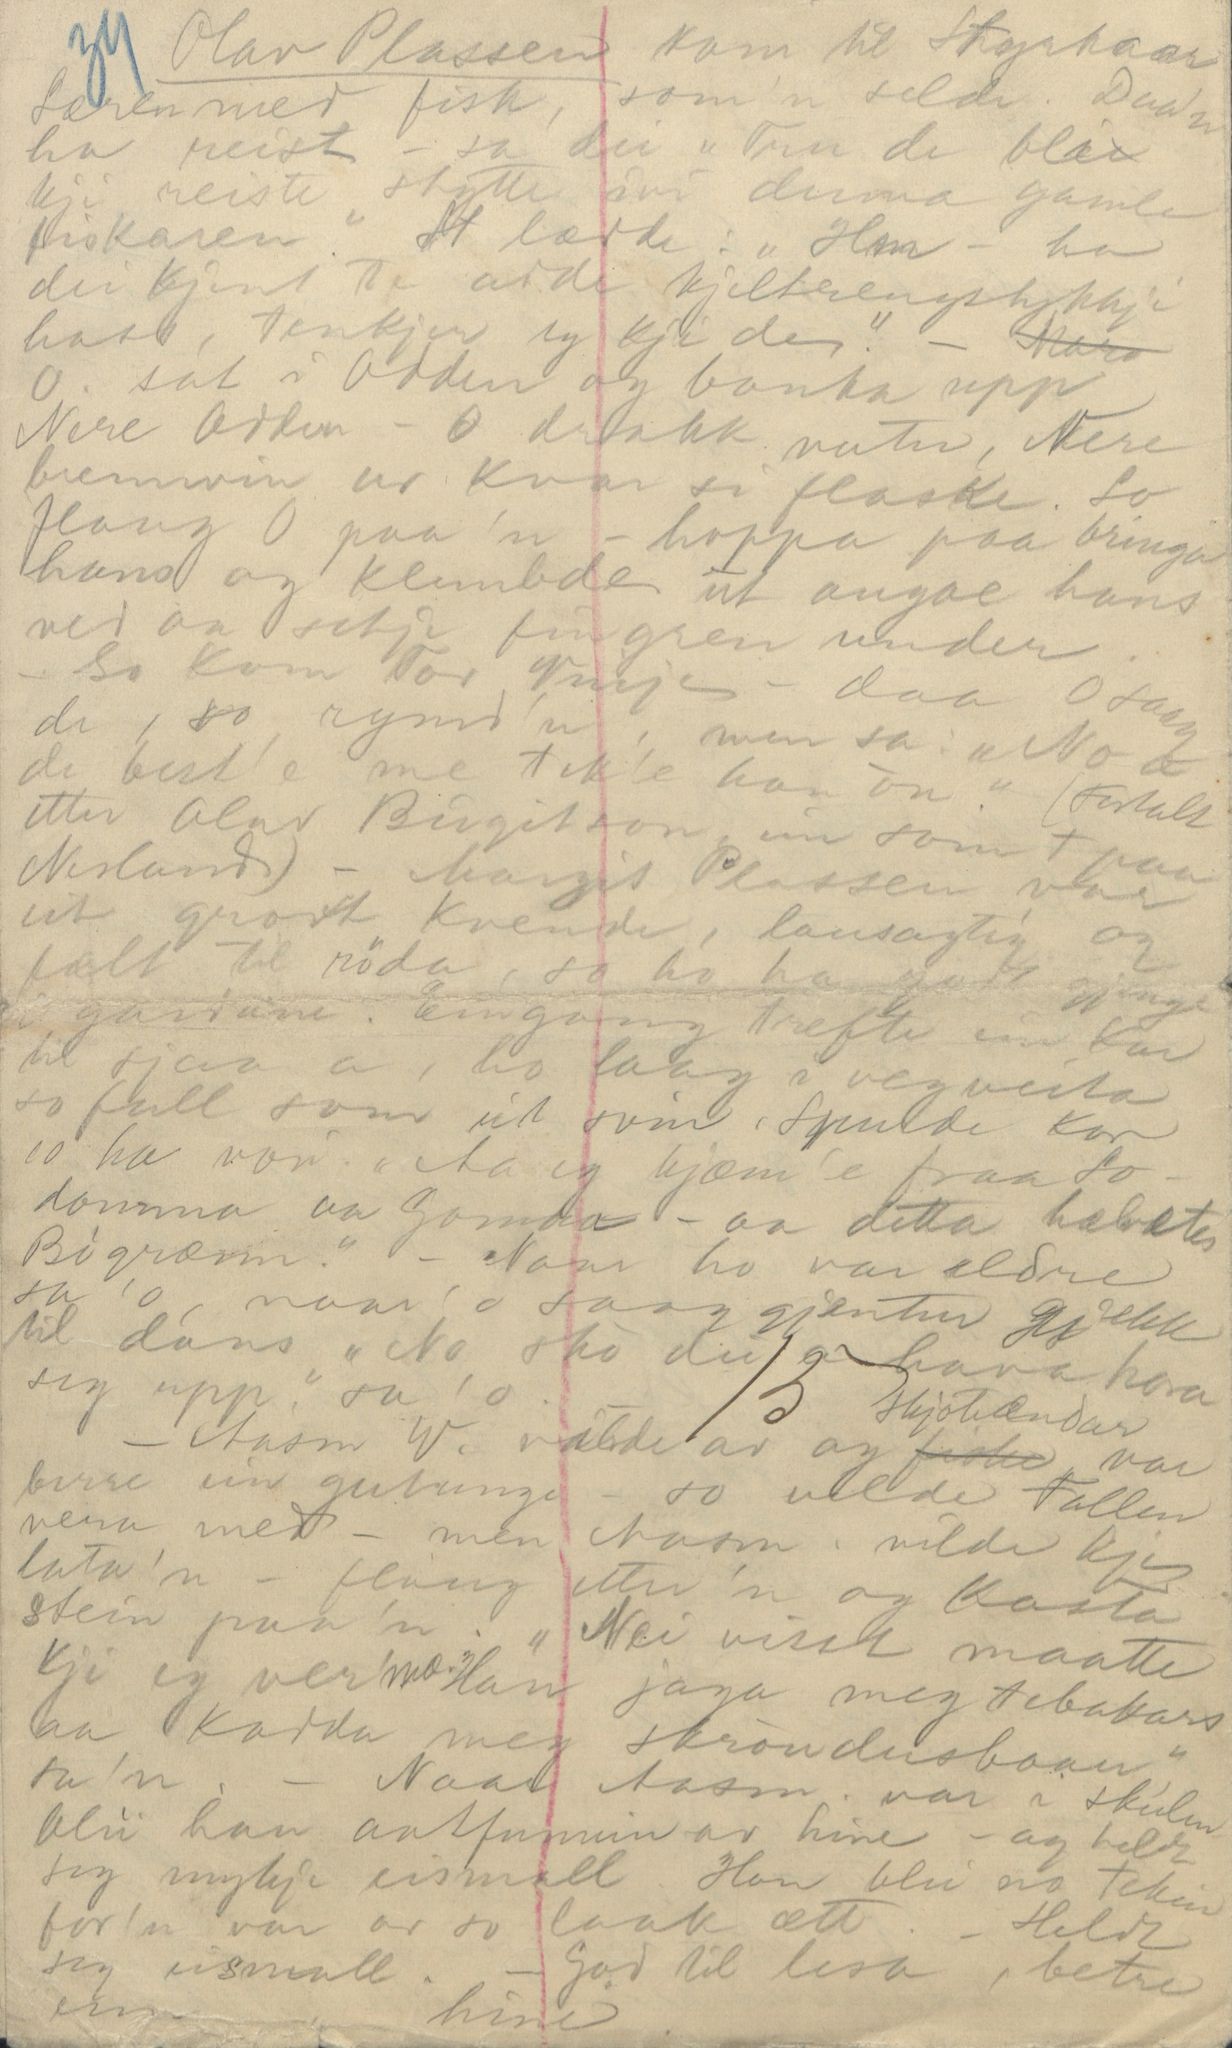 34 Olav Plassen kom til Styrkaar
Læren med fisk, som'n selde. Daa'n
ha reist - sa dei "Tru de blæs
kji reiste støtte ivi denna gamle
fiskaren." St lædde: "Hm - ha
dei kjent te adde kjeltrengstykkji
hass, tenkjer eg kji de." -
O. sat i Odden og banka upp
Nere Odden - O drakk vatn, Nere
brennvin ur kvar si flaske. So
flaug O paa'n - hoppa paa bringa
hans og klembde ut augae hans
ved aa setje fingren under.
- So kom Tor Vinje - daa O saag
de, so rymd'n, men sa: "No æ
de best'e me tek'e han ón." (Fortalt
etter Olav Birgitson, ein som t paa
Nesland) - Margit Plassen var
eit grovt kvende, lausagtig og
fælt til röda, so ho ha godt gjenge
i gardane. Eingong trefte ein kar
til sjaa a, ho laag i vegveita
so full som eit svin. Spurde kor
o ha vori. "Aa eg kjæm'e fraa So-
domma aa Gomora - aa detta helvetes
Bögrænn." - Naar ho var eldre
sa'o, naar'o saag gjentur gjekk
til dans, "No sko dei hava hora
seg upp," sa'o.
13 Skjotændar
- Aasm V. valde av og fiske, var
berre ein gutunge - so vilde Fallen
vera med - men Aasm. vilde kje
lata'n - flaug etter'n og kasta
stein paa'n. "Nei visst maatte
kji eg ver'mæ. Han jaga meg tebakars
aa kadda meg skrondusbaan"
sa'n. - Naar Aasm. var i skulen
blei han aatfunnin av hine - og heldt
seg mykje eismall. Han blei no tekin
for'n var av so laak ætt. - Heldt
seg eismall. - God til lesa, betre
enn hine